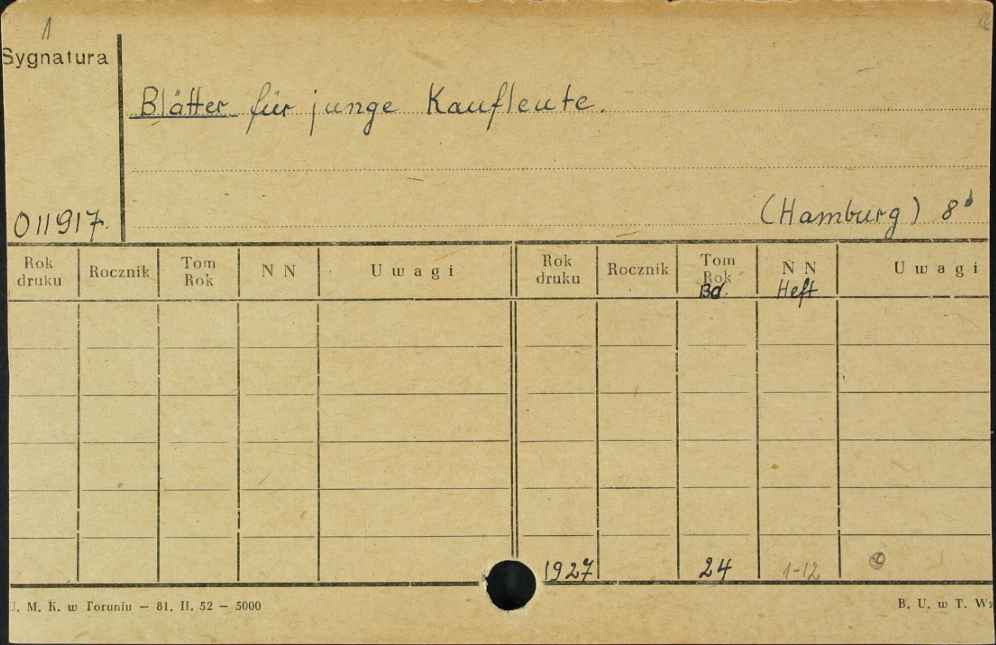 1
Sygnatura
Blätter für junge Kaufleute.
011917.
(Hamburg) 8°
Rok druku Rocznik Tom Rok N N Uwagi Rok druku Rocznik Tom Rok N N Uwagi
Bd. Heft
1927 24 1-12
U. M. K. w Toruniu — 81. II. 52 — 5000
B. U. w T.